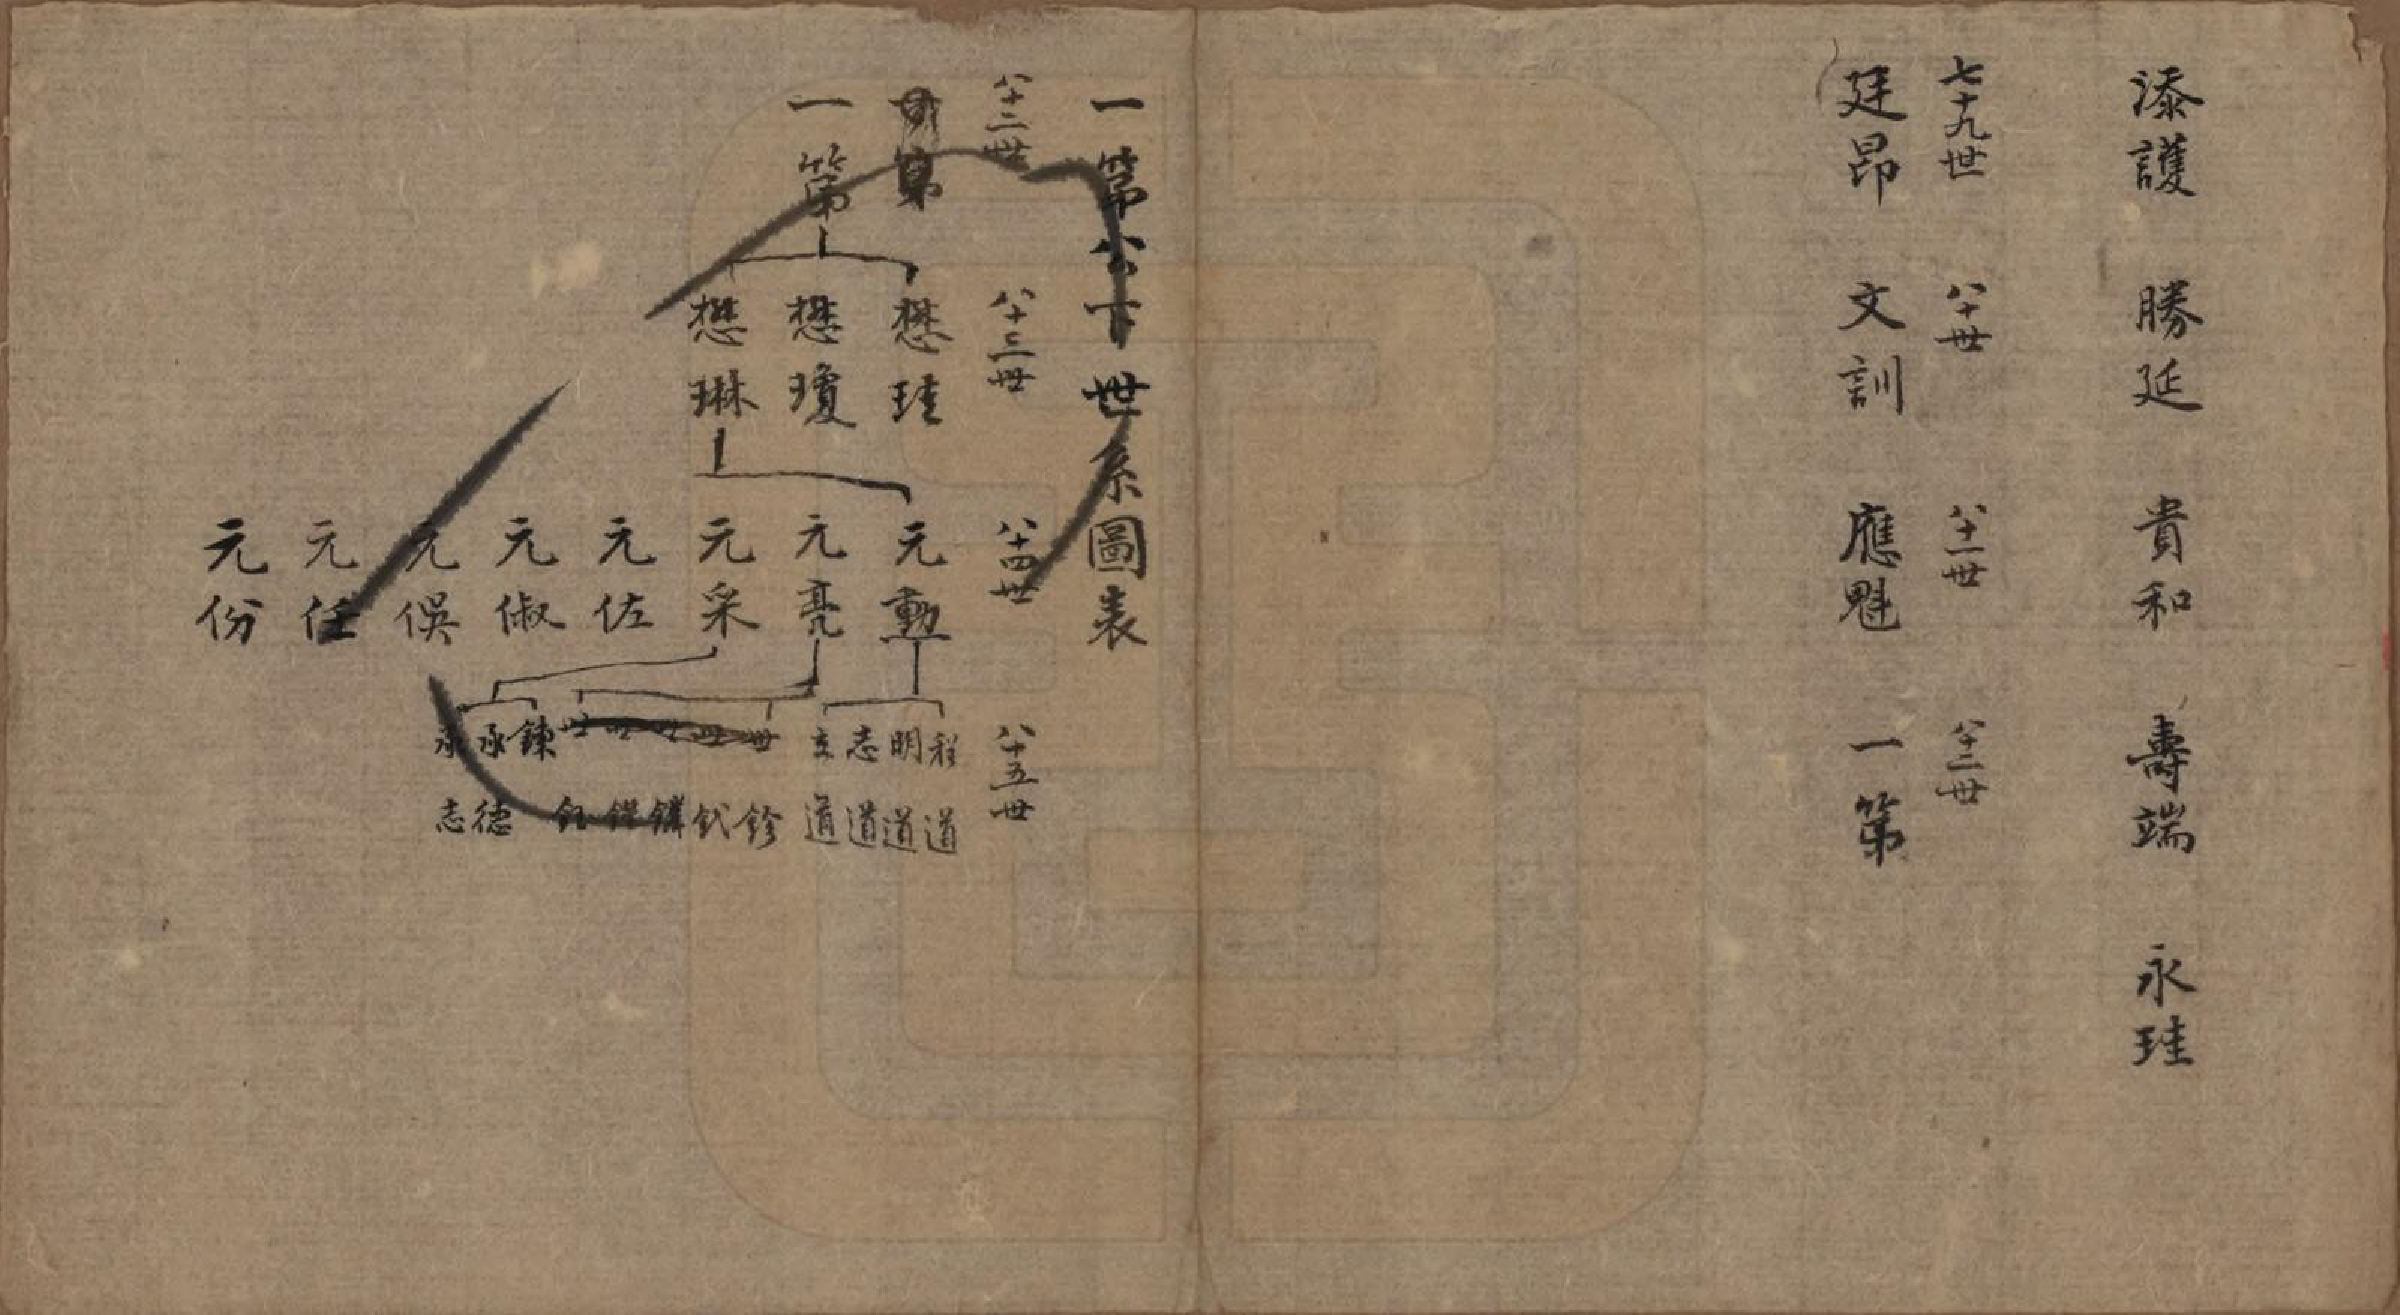 添護　勝延　貴和　壽端　永珪
七十九世　八十世　八十一世　八十二世
廷昂　文訓　應魁　一第
一第公下世系圖表
八十二世　八十三世　八十四世　八十五世
第
一第
懋珪　懋瓊　懋琳
元勳　元亮　元采　元佐　元俶　元俁　元任　元份
程道　明道　志道　立道
世鉁　世釴　世鏻　世　世鈺
鍊　承德　承志